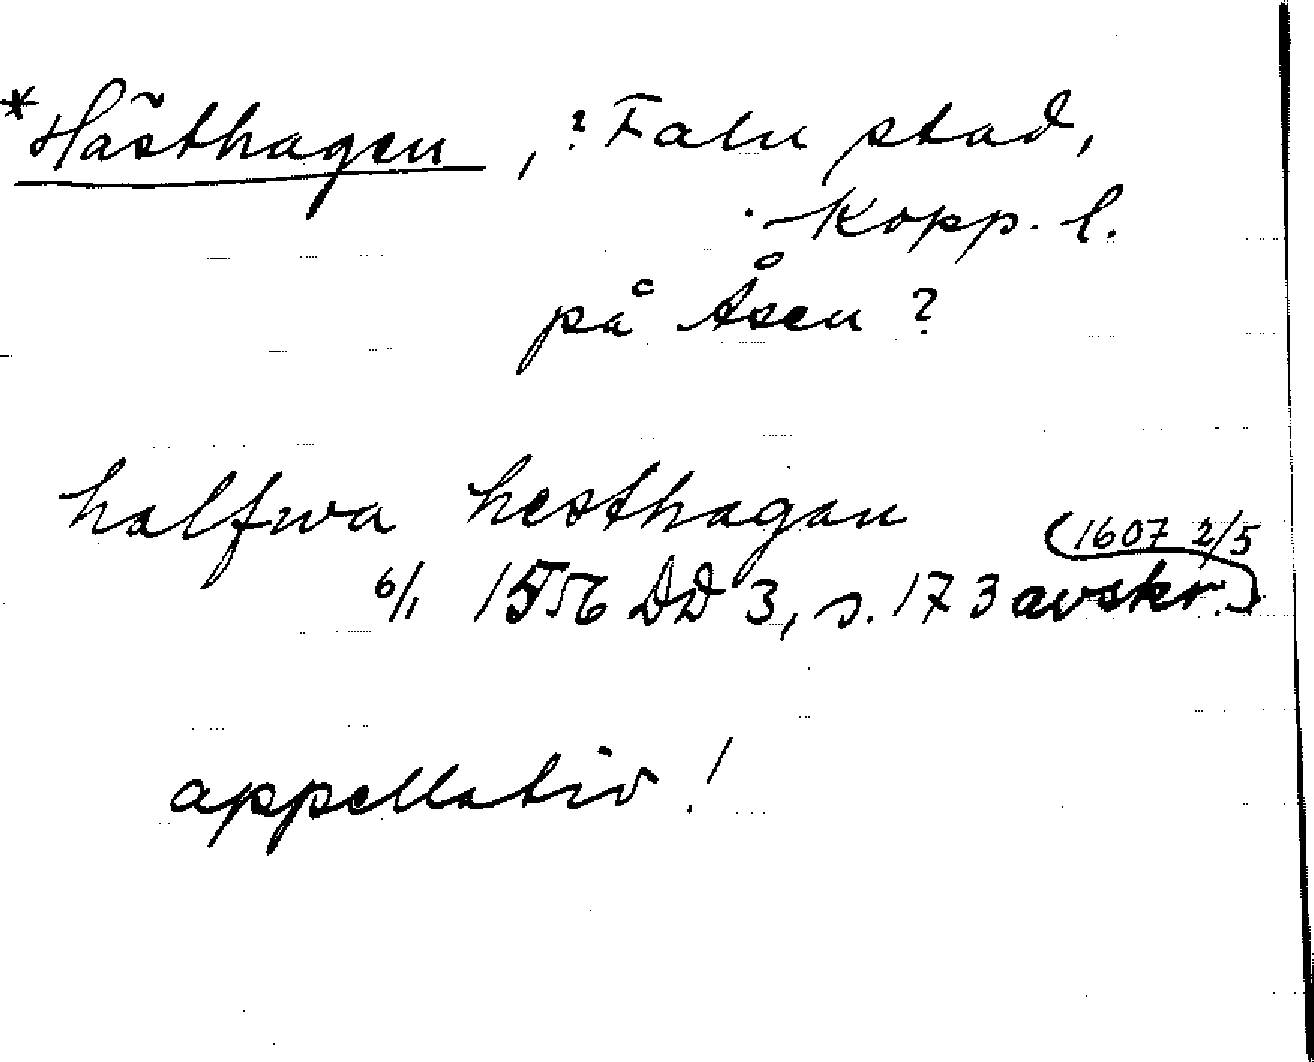 *Hästhagen, ? Falu stad,
Kopp. l.
på Åsen ?
halfwa hesthagan
6/1 1556 DD 3, s. 173 avskr. (1607 2/5)
appellativ !